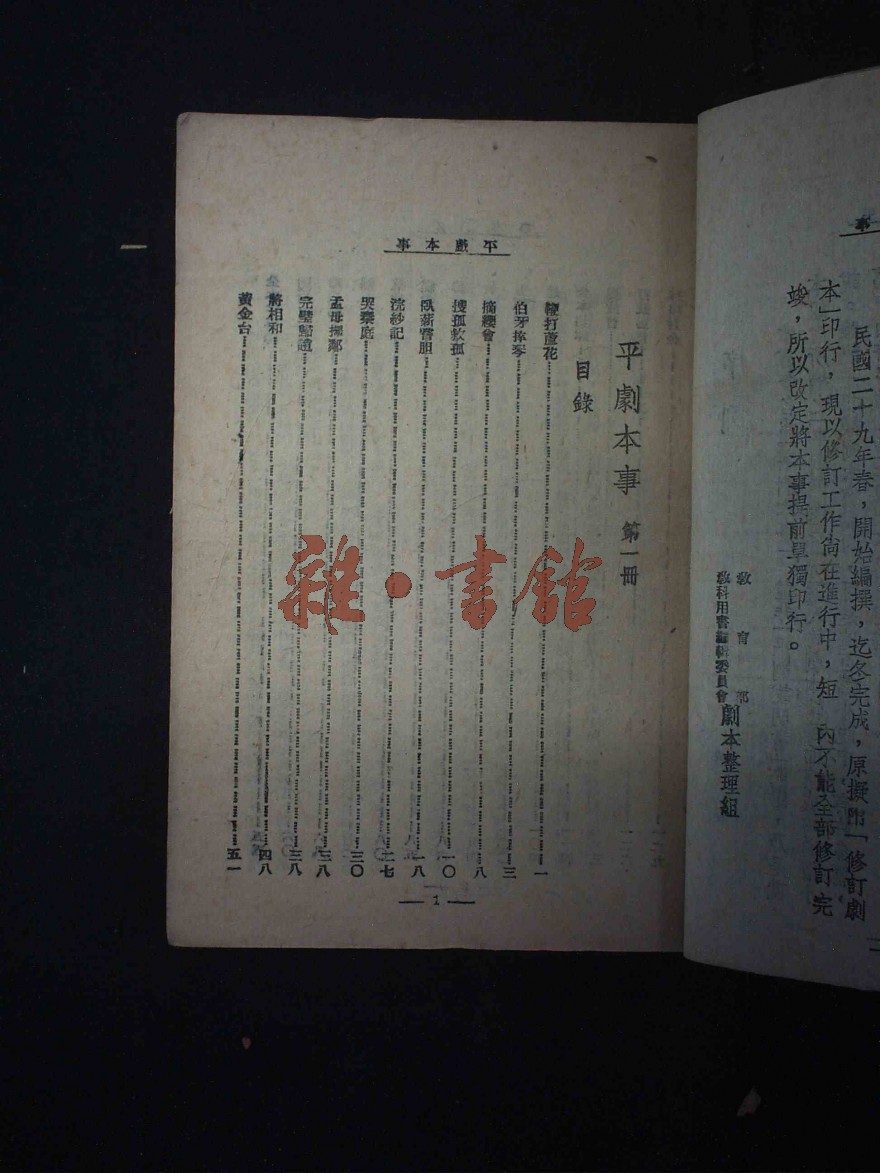 民國二十九年春，開始編撰，迄冬完成，原擬附「修訂劇
本」印行，現以修訂工作尙在進行中，短 內不能全部修訂完
竣，所以改定將本事提前單獨印行。
敎育部
敎科用書編輯委員會
劇本整理組
平戲本事
平劇本事 第一冊
目錄
鞭打蘆花 一
伯牙摔琴 三
摘纓會 八
搜孤救孤 一〇
臥薪嘗胆 一八
浣紗記 二七
哭秦庭 三〇
孟母擇鄰 三八
完璧歸趙 三八
將相和 四八
黃金台 五一
— 1 —
雜·書館